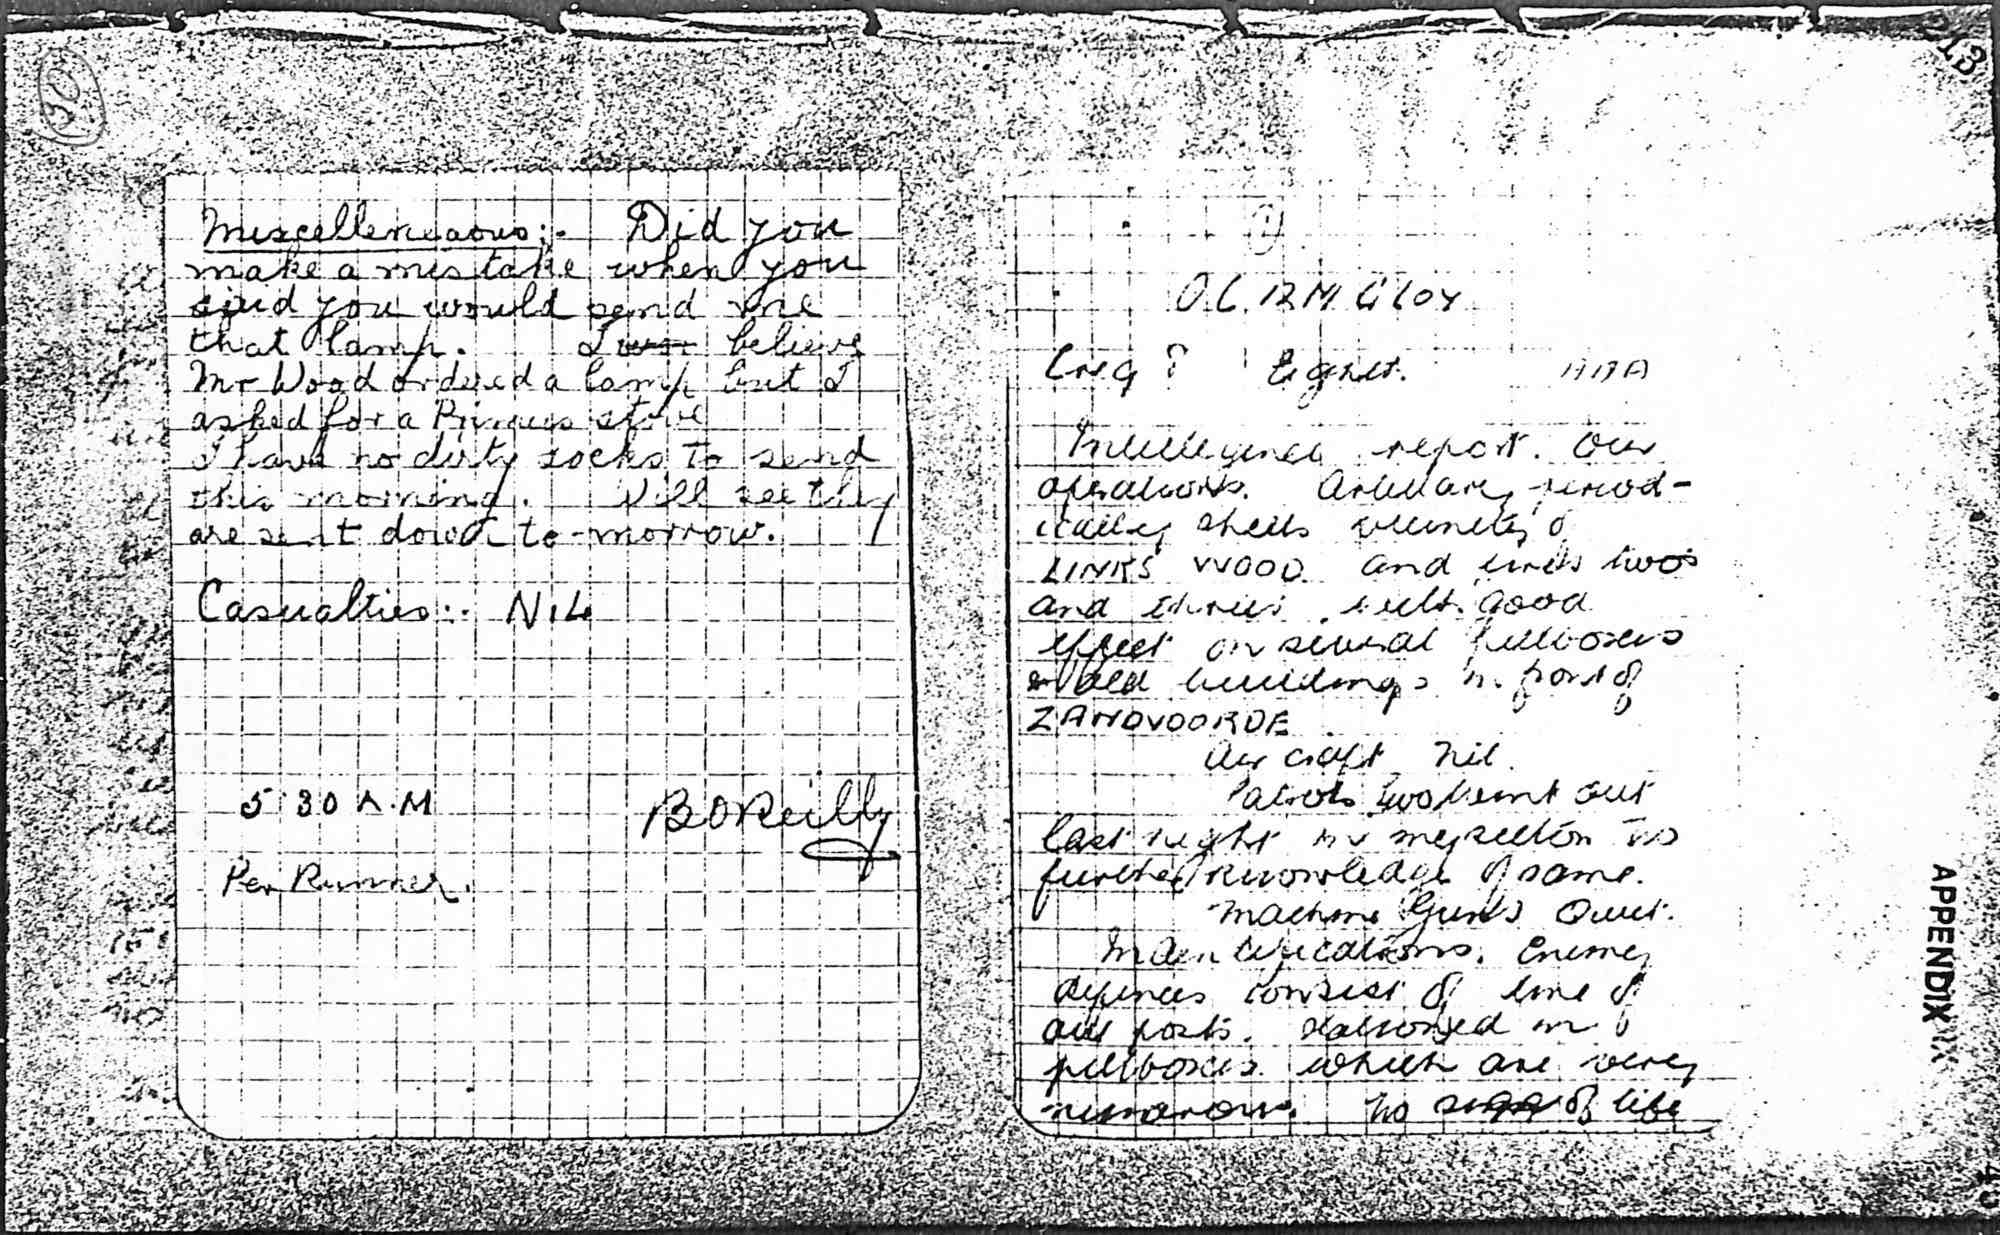 30
213
Miscelleneaous:- Did you
make a mistake when you
said you would send me
that lamp. I believe
Mr Wood ordered a lamp but I
asked for a Primus stove
I have no dirty socks to send
this morning. Will see they
are sent down to-morrow.
Casualties:- Nil
5 30 A.M
BOReilly
Per Runner.
1
O.C. 12 M.G Coy
Intelligence report. Our
operations. Artillary period-
ically shells vicinity of
LINKS WOOD and
and good
effect on several pillboxes
old buildings in front of
ZANDVOORDE
Air craft Nil.
Patrols two went out
last night
further knowledge of same.
Machine Guns Quiet.
Enemy
defences consist of line of
out posts. stationed in
pillboxes which are very
numerous. No sign of life
APPENDIX